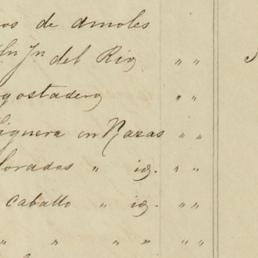 os de amoles
Sn Jn del Rio " "
gostadero " "
iguera en Nazas " "
lorados " id. " "
Caballo " id. " "
" " " " "